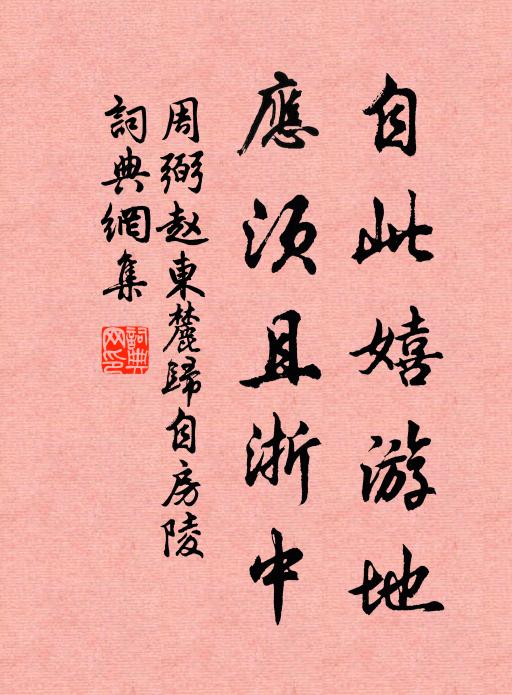 自此嬉游地
應須且浙中
周弼赵東麓歸自房陵
詞典網集
詞典網印